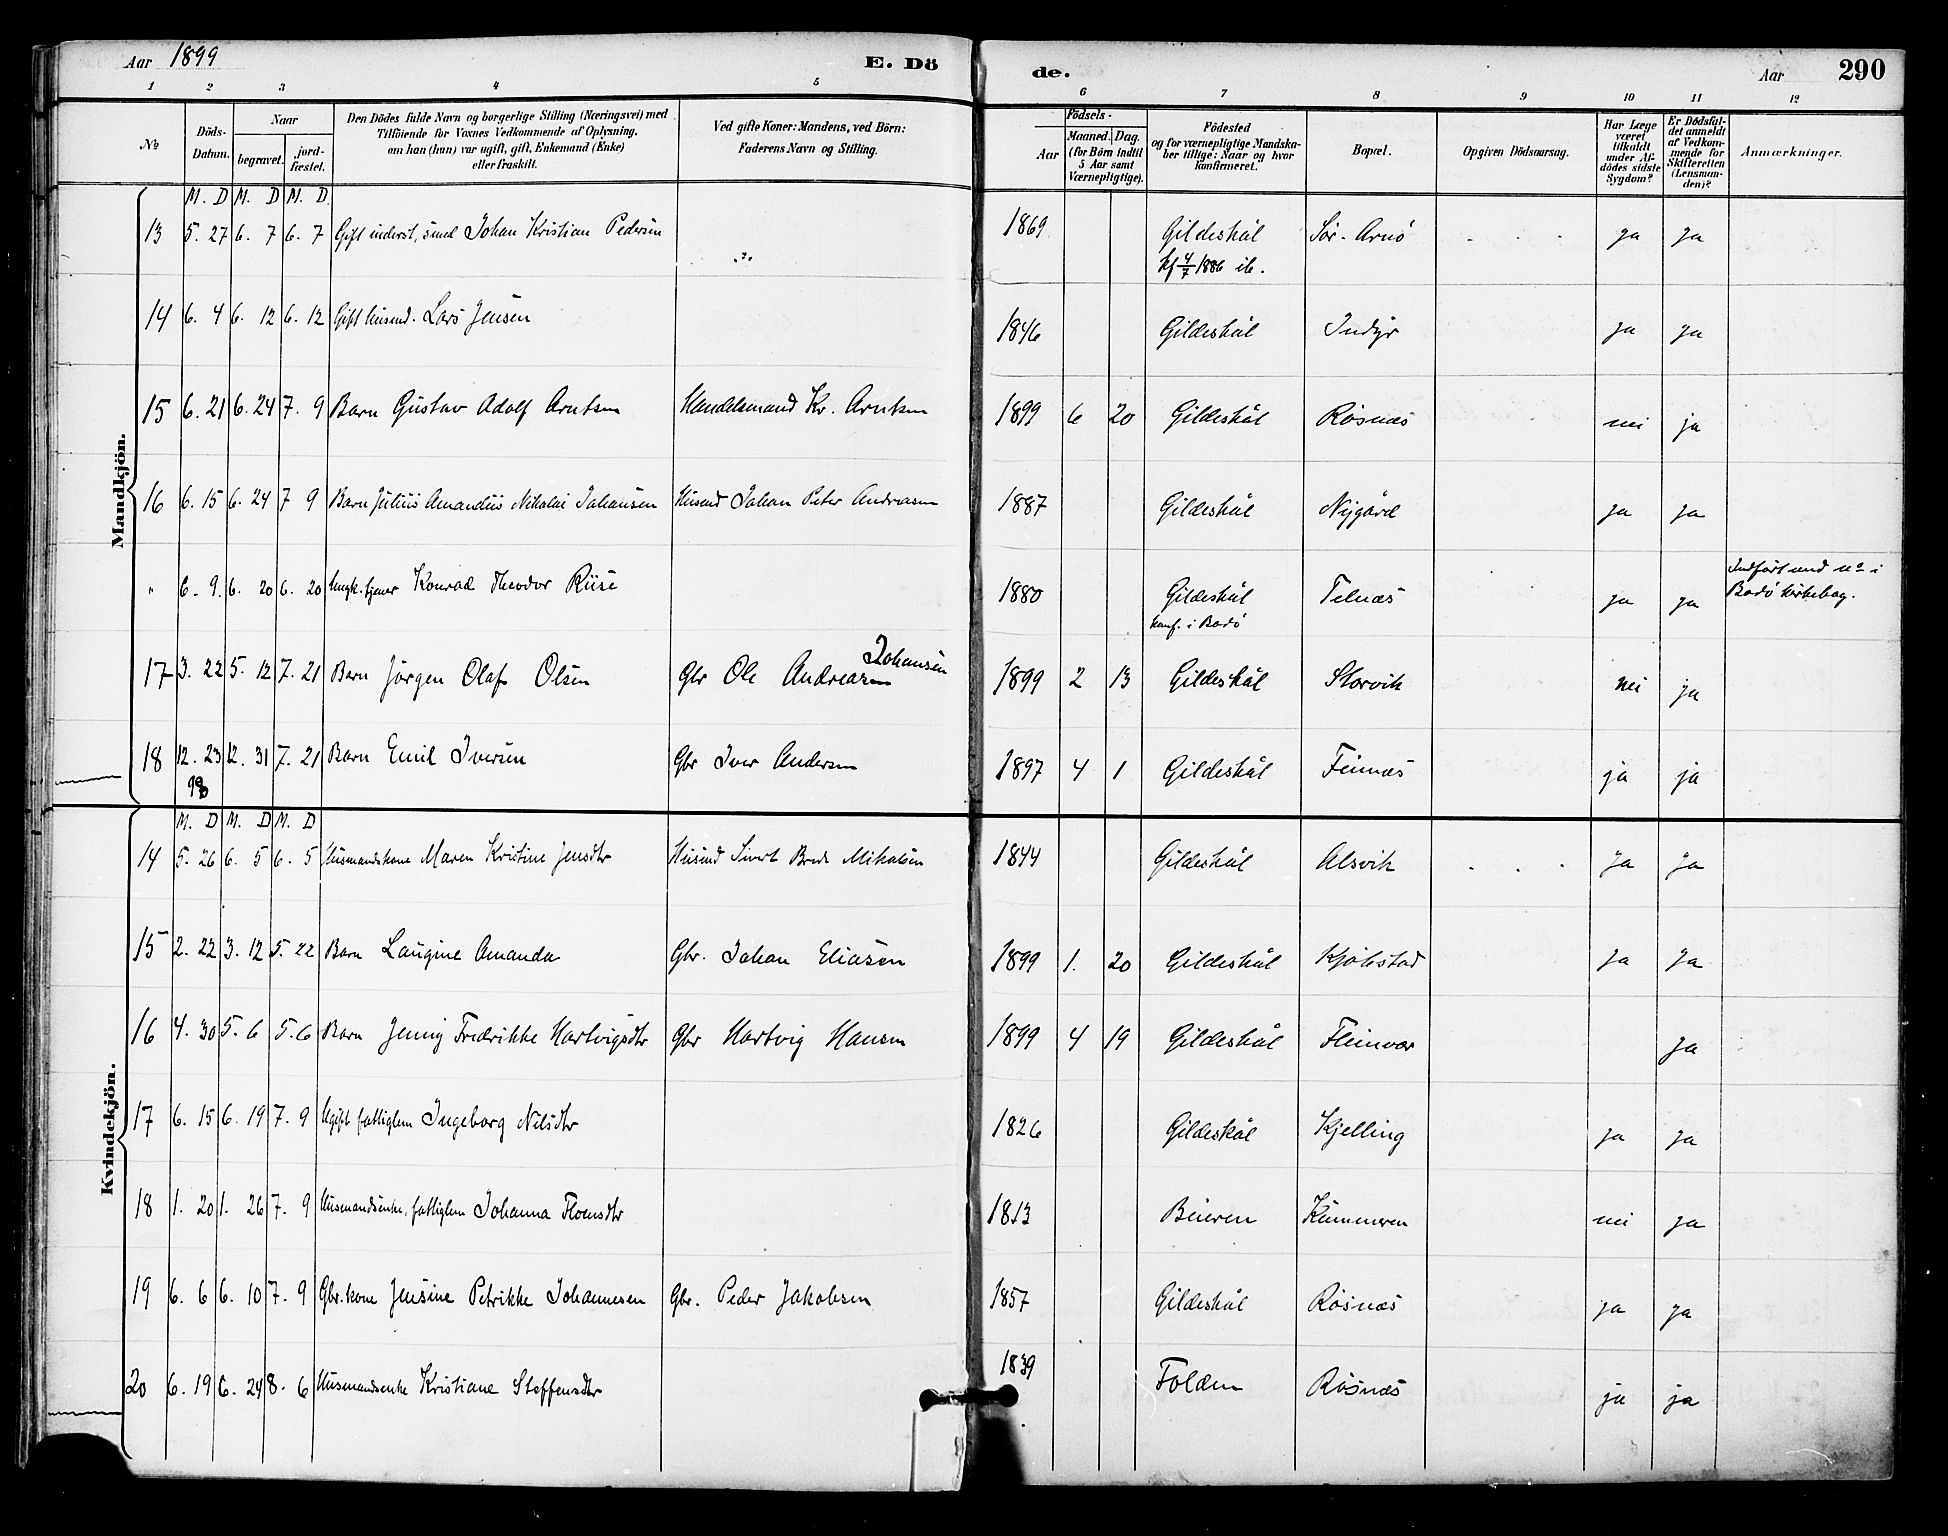 Aar 1899 E. Dö de. Aar 290
1 2 3 4 5 6 7 8 9 10 11 12
№
Döds-Datum.
Naar
begravet.
jord-fæstet.
Den Dödes fulde Navn og borgerlige Stilling (Næringsvei) med
Tilföiende for Voxnes Vedkommende af Oplysning,
om han (hun) var ugift, gift, Enkemand (Enke)
eller fraskilt.
Ved gifte Koner: Mandens, ved Börn:
Faderens Navn og Stilling.
Födsels-
Aar
Maaned. Dag.
(for Börn indtil
5 Aar samt
Værnepligtige).
Födested
og for værnepligtige Mandska-
ber tillige: Naar og hvor
konfirmeret.
Bopæl.
Opgiven Dödsaarsag.
Har Læge
været
tilkaldt
under Af-
dödes sidste
Sygdom?
Er Dödsfal-
det anmeldt
af Vedkom-
mende for
Skifteretten
(Lensman-
den)?
Anmærkninger.
Mandkjön.
M. D M. D M. D.
13 5. 27 6. 7 6. 7 Gift inderst, smed Johan Kristian Pedersen 1869 Gildeskål Sör-Arnö ja ja
kf 4/7 1886 ib.
14 6. 4 6. 12 6. 12 Gift husmd. Lars Jensen 1846 Gildeskål Indyr ja ja
15 6. 21 6. 24 7. 9 Barn Gustav Adolf Arntsen Handelsmand Kr. Arntsen 1899 6 20 Gildeskål Rösnæs nei ja
16 6. 15 6. 24 7 9 Barn Julius Amandus Nikolai Johansen Husmd Johan Peter Andreasen 1887 Gildeskål Nygård ja ja
" 6. 9. 6. 20 6. 20 Ungk. tjener Konrad Theodor Riise 1880 Gildeskål Telnæs ja ja Indfört med no i
konf. i Bodö Bodö kirkebog.
17 3. 22 5. 12 7. 21 Barn Jörgen Olaf Olsen Gbr Ole Andreasen Johansen 1899 2 13 Gildeskål Storvik nei ja
18 12. 23 12. 31 7. 21 Barn Emil Iversen Gbr Iver Andersen 1897 4 1 Gildeskål Feinæs ja ja
98
Kvindekjön.
M. D M. D M. D
14 5. 26 6. 5 6. 5 Husmandskone Maren Kristine Jensdtr Husmd Sivert Brede Mikalsen 1844 Gildeskål Alsvik ja ja
15 2. 22 3. 12 5. 22 Barn Laugine Amanda Gbr. Johan Eliasen 1899 1. 20 Gildeskål Kjölstad ja ja
16 4. 30 5. 6 5. 6 Barn Jenny Fredrikke Hartvigsdtr Gbr Hartvig Hansen 1899 4 19 Gildeskål Fleinvær ja
17 6. 15 6. 19 7. 9 Ugift fattiglem Ingeborg Nilsdtr 1826 Gildeskål Kjelling ja ja
18 1. 20 1. 26 7. 9 Husmandsenke, fattiglem Johanna 1813 Beieren nei ja
19 6. 6 6. 10 7. 9 Gbr.kone Jensine Petrikke Johannesen Gbr. Peder Jakobsen 1857 Gildeskål Rösnæs ja ja
20 6. 19 6. 24 8. 6 Husmandsenke Kristiane Steffensdtr 1839 Folden Rösnæs ja ja